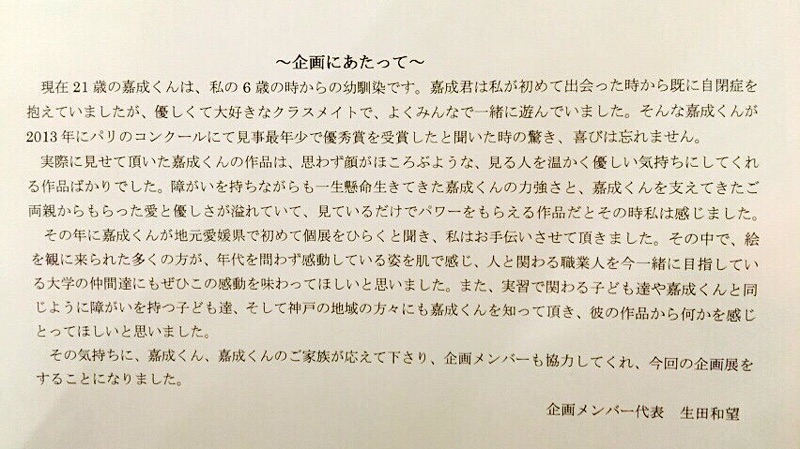 ～企画にあたって～
現在 21 歳の嘉成くんは、私の 6 歳の時からの幼馴染です。嘉成君は私が初めて出会った時から既に自閉症を
抱えていましたが、優しくて大好きなクラスメイトで、よくみんなで一緒に遊んでいました。そんな嘉成くんが
2013 年にパリのコンクールにて見事最年少で優秀賞を受賞したと聞いた時の驚き、喜びは忘れません。
実際に見せて頂いた嘉成くんの作品は、思わず顔がほころぶような、見る人を温かく優しい気持ちにしてくれ
る作品ばかりでした。障がいを持ちながらも一生懸命生きてきた嘉成くんの力強さと、嘉成くんを支えてきたご
両親からもらった愛と優しさが溢れていて、見ているだけでパワーをもらえる作品だとその時私は感じました。
その年に嘉成くんが地元愛媛県で初めて個展をひらくと聞き、私はお手伝いさせて頂きました。その中で、絵
を観に来られた多くの方が、年代を問わず感動している姿を肌で感じ、人と関わる職業人を今一緒に目指してい
る大学の仲間達にもぜひこの感動を味わってほしいと思いました。また、実習で関わる子ども達や嘉成くんと同
じように障がいを持つ子ども達、そして神戸の地域の方々にも嘉成くんを知って頂き、彼の作品から何かを感じ
とってほしいと思いました。
その気持ちに、嘉成くん、嘉成くんのご家族が応えて下さり、企画メンバーも協力してくれ、今回の企画展を
することになりました。
企画メンバー代表　生田和望